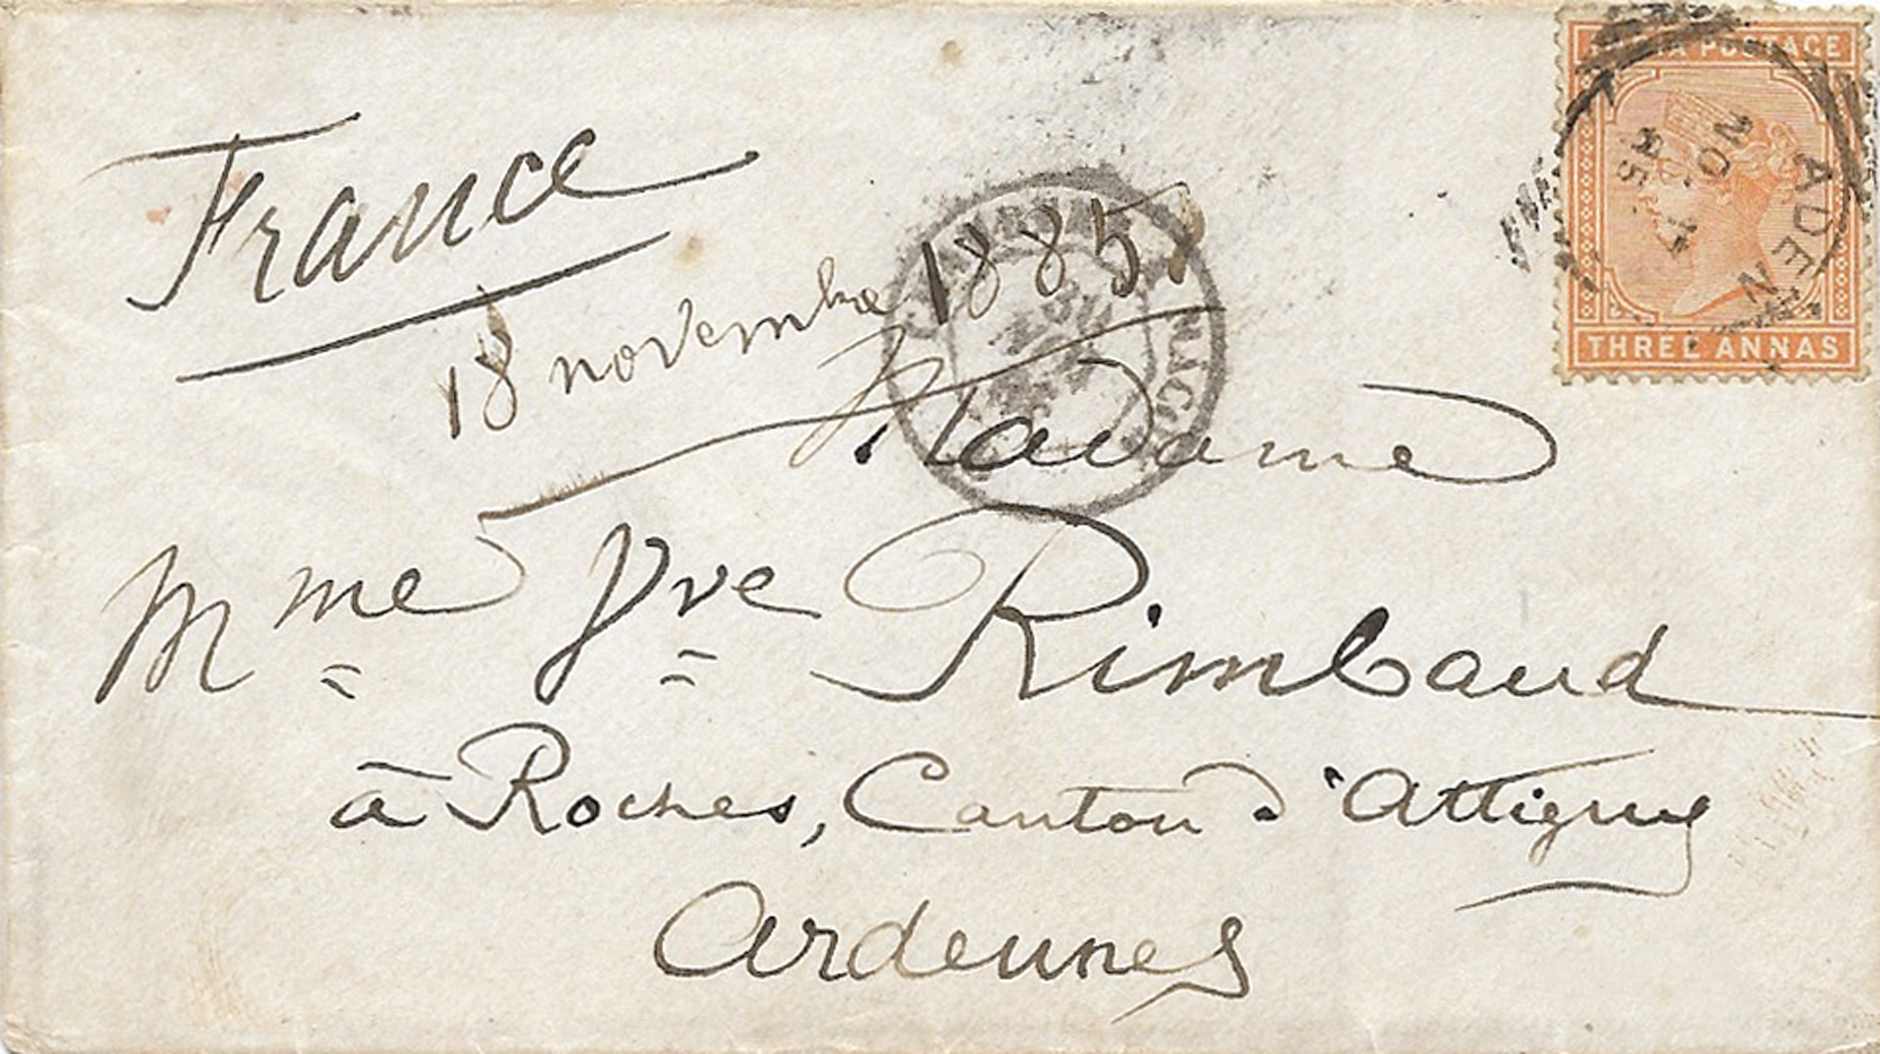 France
18 novembre 1885.
Madame
Mme Vve Rimbaud
à Roches, Canton d'Attigny
Ardennes
INDIA POSTAGE
ADEN
NO. 17
85
THREE ANNAS